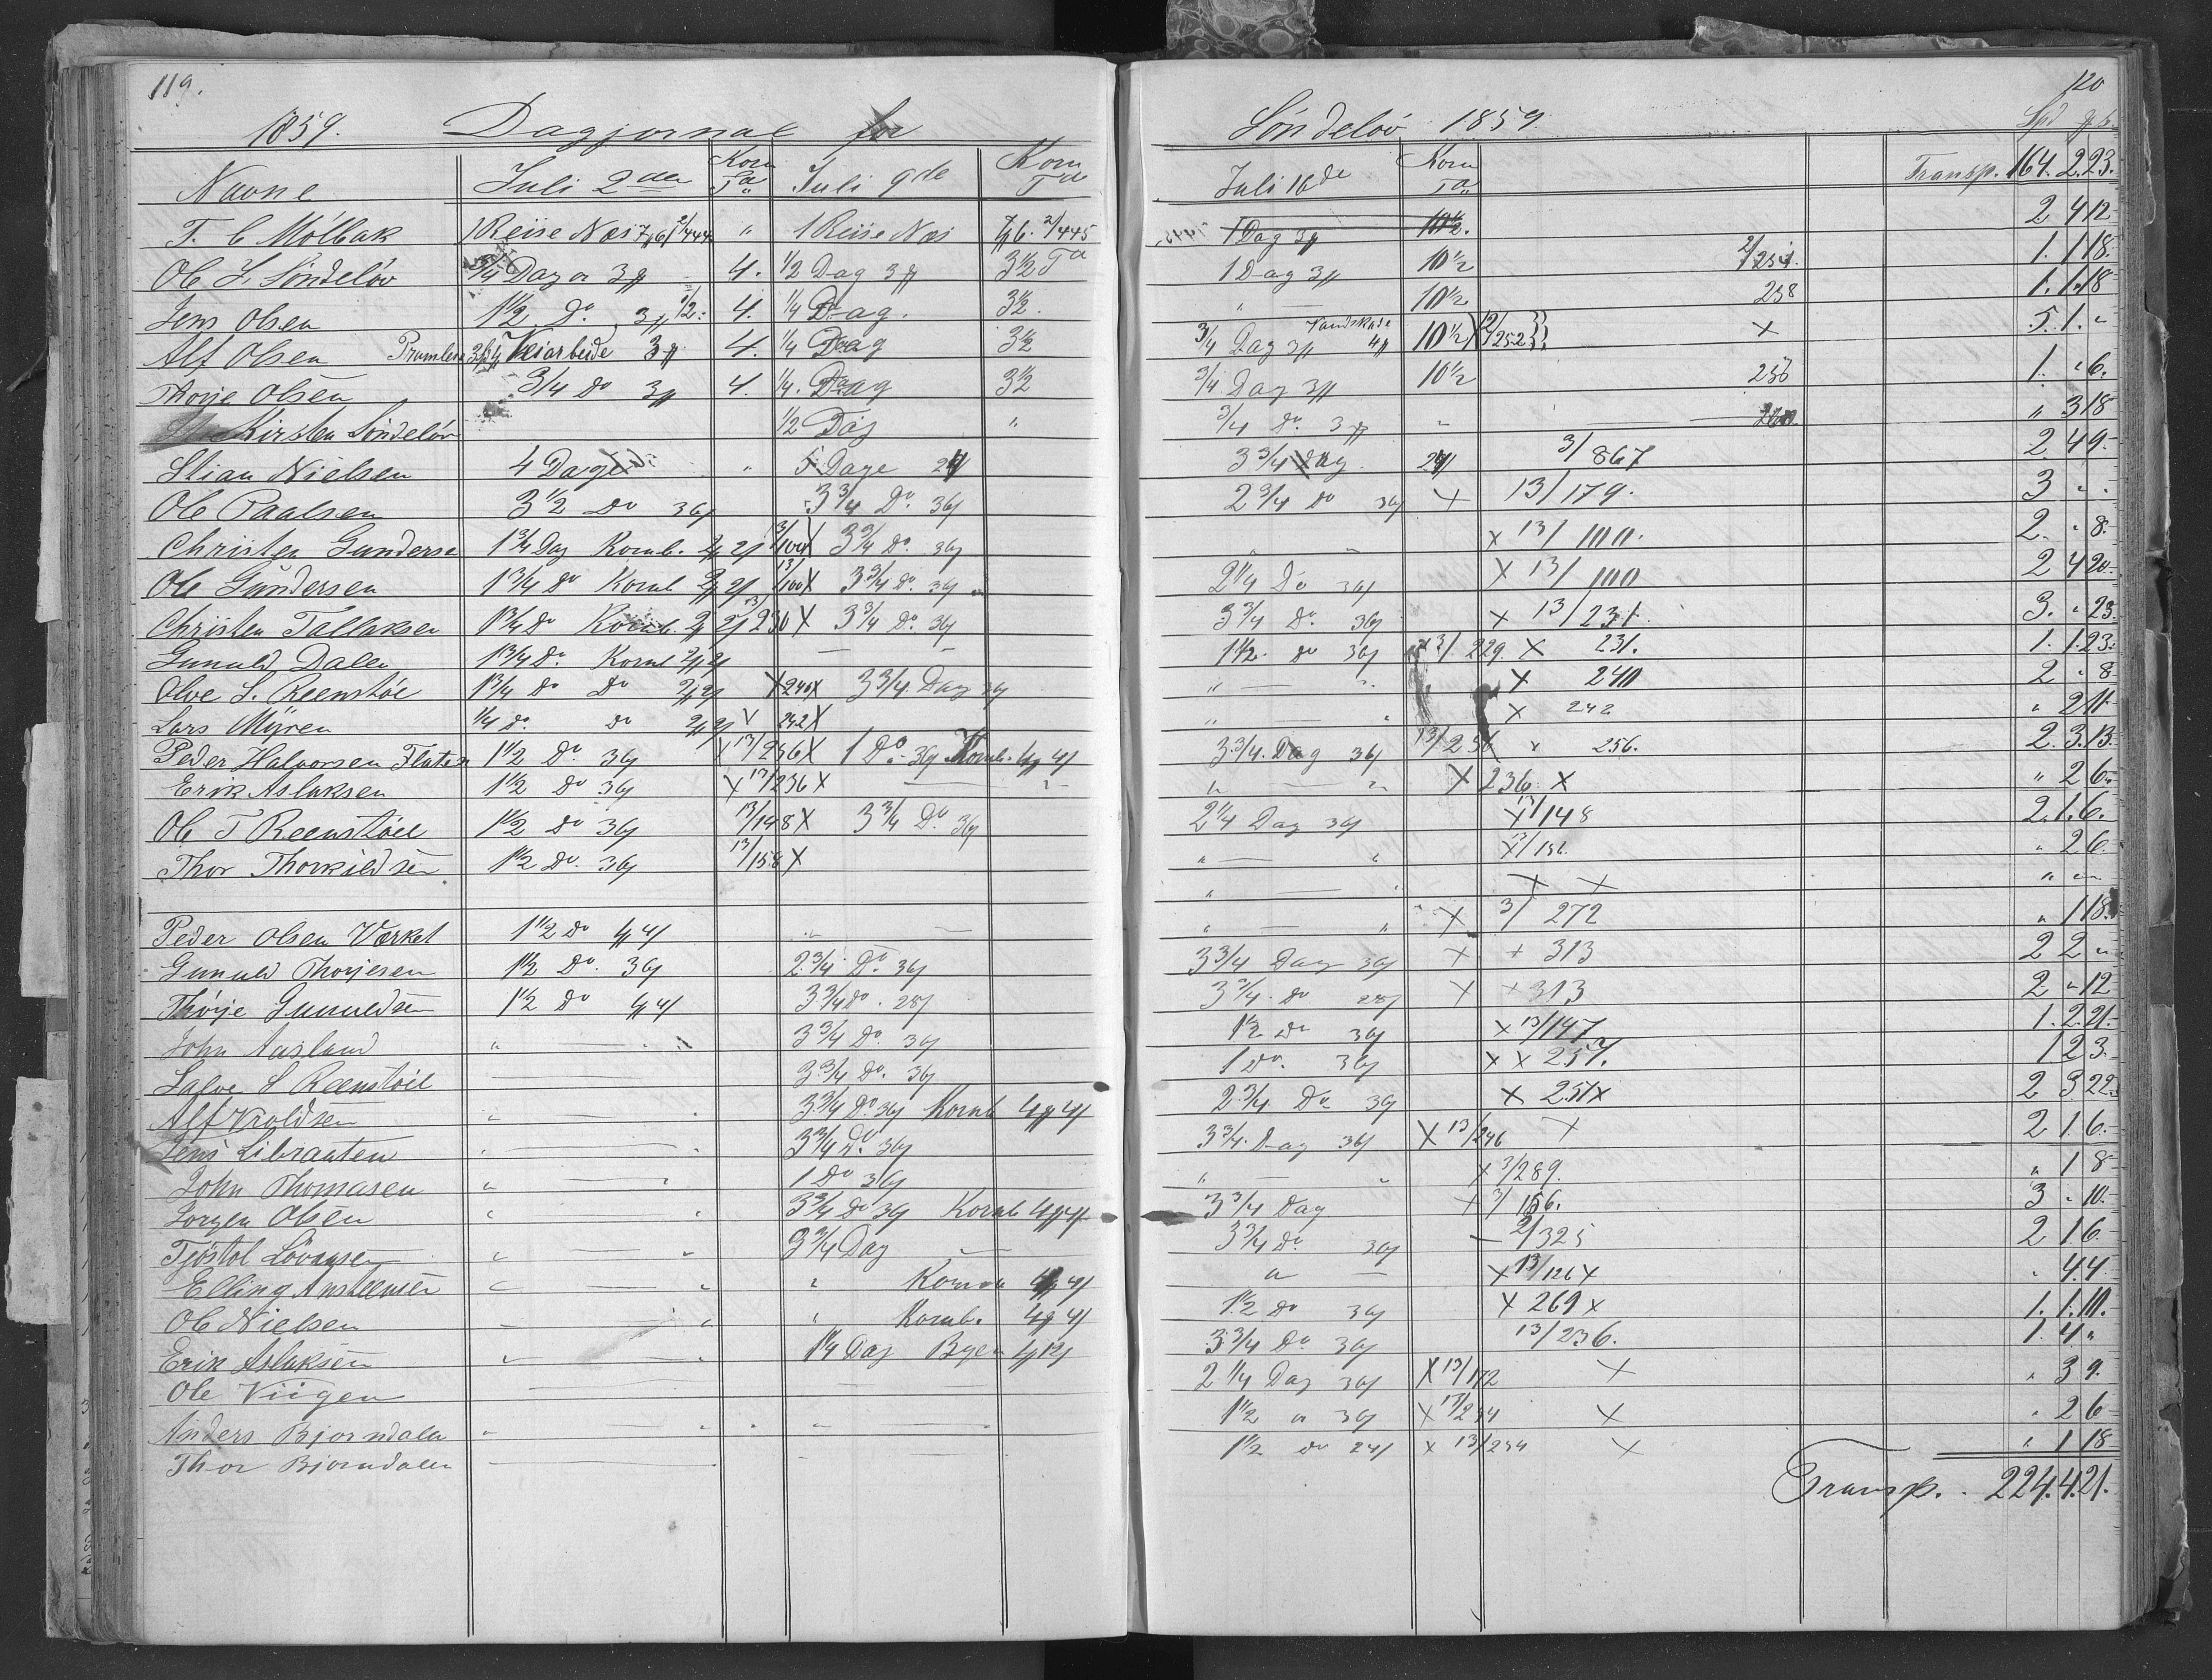 119.
1859. Dagjornal for
Navne Juli 2den Korn Td Juli 9de Korn Td
T. C Mölbak 1 Reise Næs 7 6 2/444 " 1 Reise Næs 7 6. 2/445
Ole L. Söndelöv 3/4 Dag a 3 4. 1/2 Dag 3 3 1/2 Td
Jens Olsen 1 1/2 Do. 3 1/2 4. 1/4 Dag. 3 1/2.
Alf Olsen Veiarbeide 3 4. 1/4 Dag 3 1/2
Thorje Olsen 3/4 Do 3 4. 1/4. Dag 3 1/2
Kirsten Söndelöv 1/2 Dag "
Stian Nielsen 4 Dage " 5 Dage 24
Ole Paalsen 3 1/2 Do 36 3 3/4 Do. 36
Christen Gunderse 1 3/4 Dag Kornb. 2 2 13/100 X 3 3/4 Do. 36
Ole Gundersen 1 3/4 do Kornb 2 2 13/100 X 3 3/4 Do. 36
Christen Tallaksen 1 3/4 Do Kornb. 2 2 13/230 X 3 3/4 Do. 36
Gunuld Dalen 1 3/4 Do. Kornb 2 2 — —
Olve S. Reenstöe 1 3/4 Do Do 2 2 X 240 X 3 3/4. Dag 36
Lars Myren 1/4 do. Do 2 2 X 242 X
Peder Halvorsen Flaten 1 1/2 Do. 36 X 13/256 X 1 Do. 36 Kornb. 4 4
Erik Aslaksen 1 1/2 Do 36 X 13/236 X —
Ole T Reenstöel 1 1/2 Do 36 13/148 X 3 3/4 Do. 36
Thor Thorkildsen 1 1/2 Do. 36 13/158 X
Peder Olsen Værket 1 1/2 Do 4 4 " —
Gunuld Thorjesen 1 1/2 Do. 36 2 3/4 Do. 36
Thorje Gunuldsen 1 1/2 Do 4 4 3 3/4 Do. 28
John Aasland " — " 3 3/4 Do. 36
Salve S Reenstöil — 3 3/4 Do. 36
Alf Kroldsen " — 3 3/4 Do 36 Kornb 4 4
Jens Libranten " — 3 3/4 Do. 36
John Thomasen " — " 1 Do 36
Jorgen Olsen " — " 3 3/4 Do 36 Kornb 4 4
Tjöstol Lövaasen " — " 3 3/4 Dag —
Elling Ansteensen " — " " 4 4
Ole Nielsen " — " " Kornb. 4 4
Erik Aslaksen " — " 1 1/4 Dag Bgen 4 12
Ole Viigen — —
Anders Bjorndalen " — " " —
Thor Bjorndalen — "
120
Söndelöv 1859. Spd
Juli 16de Korn Td Transp. 164. 2. 23.
1 Dag 3 10 1/2. 2 4 12
1 Dag 3 10 1/2 2/254. 1. 1 18.
" — 10 1/2 258 1. 1. 18
3/4 Dag 3 Vandskade 4 10 1/2 2/252 X 5. 1. "
3/4 Dag 3 10 1/2 256 1. " 6.
3/4 Do. 3 " — 260 " 3 18
3 3/4 Dag 24 3/867 2 4 9
2 3/4 Do 36 X 13/179. 3 " "
" — X 13/100. 2. " 8.
2 1/4 Do 36 X 13/100 2 4 20
3 3/4 Do. 36 X 13/231. 3. " 23
1 1/2 do 36 13/229. X 231. 1. 1. 23
" — " X 240 2 " 8
" — " X 242 " 2 11
3 3/4. Dag 36 13/256 x 256. 2. 3. 13
" — " X 236 X " 2 6
2 1/4 Dag 36 X 13/148 2. 1. 6.
" — " X 13/ " 2 6
" — " X X " " "
" — " X 3/272 " 1 18
3 3/4 Dag 36 X + 313 2 2 "
3 3/4. Do 28 X + 313 2 " 12
1 1/2 Do 36 X 13/147 1. 2. 21
1 Do. 36 X X 257. 1 2 3.
2 3/4 Do 36 X 251 X 2 3 22
3 3/4. Dag 36 X 13/246 X 2 1. 6
" — " X 3/289. " 1 8
3 3/4 Dag + 3/156. 3 " 10
3 3/4 Do. 36 — 2/325 2 1 6
" — X 13/126 X " 4 4
1 1/2 Do 36 X 269 X 1. 1. 10.
3 3/4 Do 36 13/236. 1. 4 "
2 1/4 Dag 36 X 13/172 X " 3 9.
1 1/2 " 36 X 13/234 X " 2 6
1 1/2 Do 24 X 13/234 X " 1 18
Transp. 224. 4. 21.